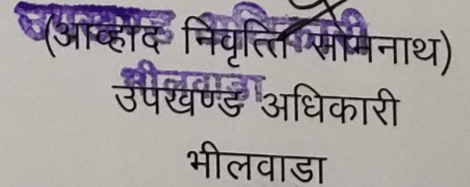 (आव्हाद निवृत्ति सोमनाथ)
उपखण्ड अधिकारी
भीलवाडा
भीलवाडा